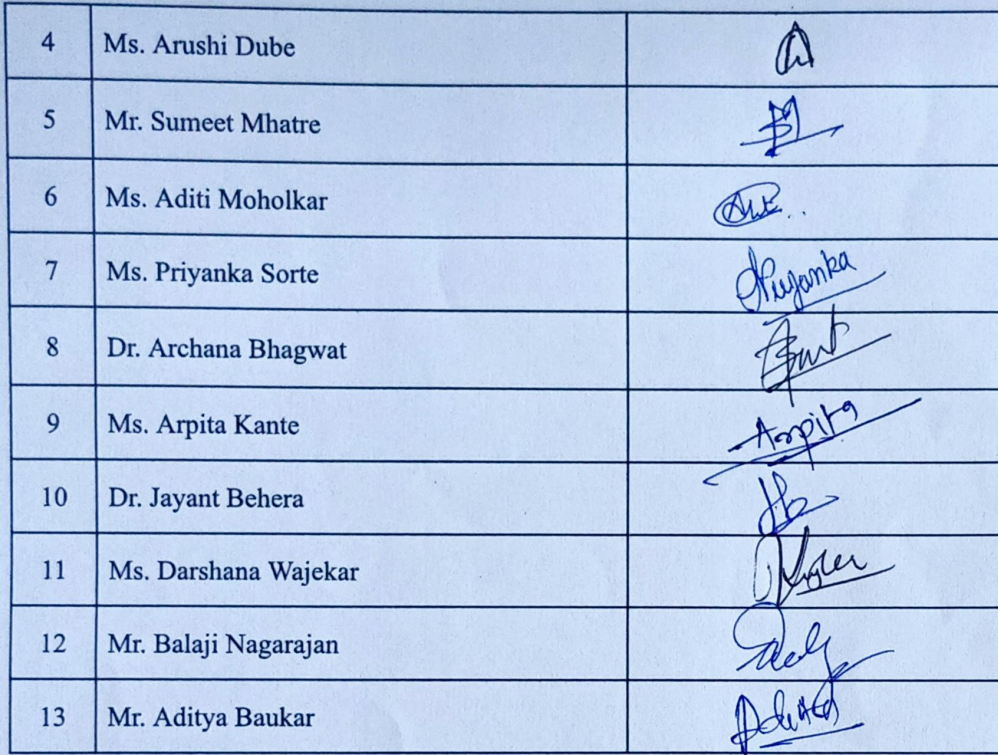 4 Ms. Arushi Dube
5 Mr. Sumeet Mhatre
6 Ms. Aditi Moholkar
7 Ms. Priyanka Sorte Priyanka
8 Dr. Archana Bhagwat
9 Ms. Arpita Kante Arpita
10 Dr. Jayant Behera
11 Ms. Darshana Wajekar
12 Mr. Balaji Nagarajan
13 Mr. Aditya Baukar